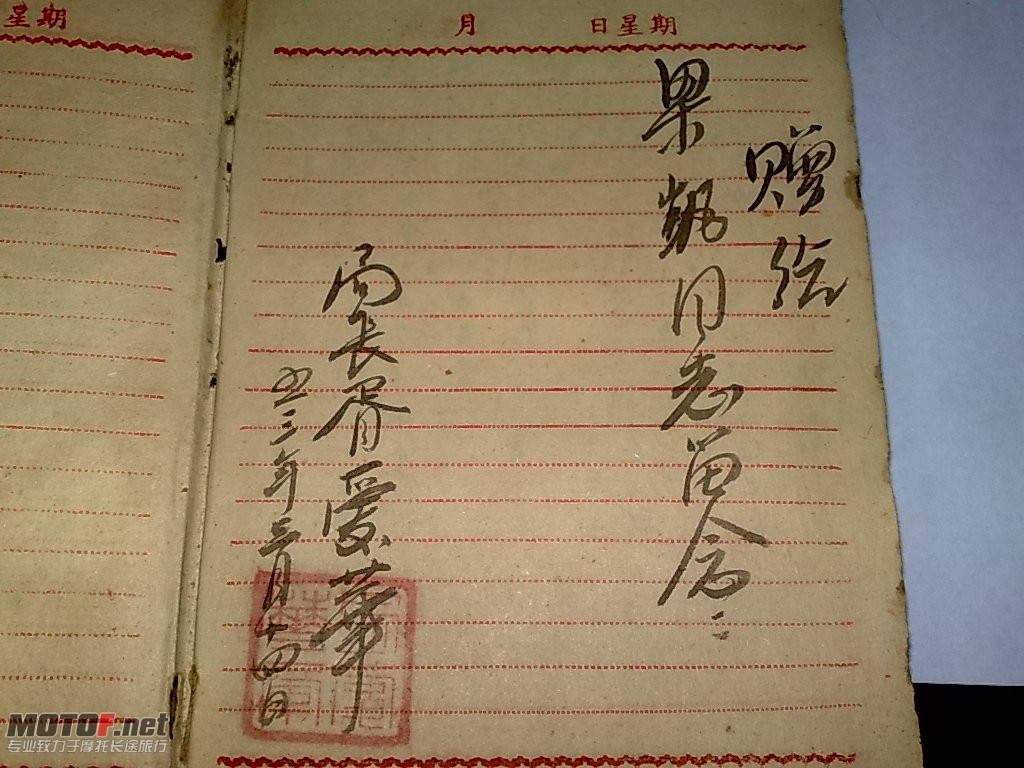 星期
月 日星期
赠给
果凯同志留念
局长胥爱华
五三年三月十四日
MOTOF.net
专业致力于摩托长途旅行